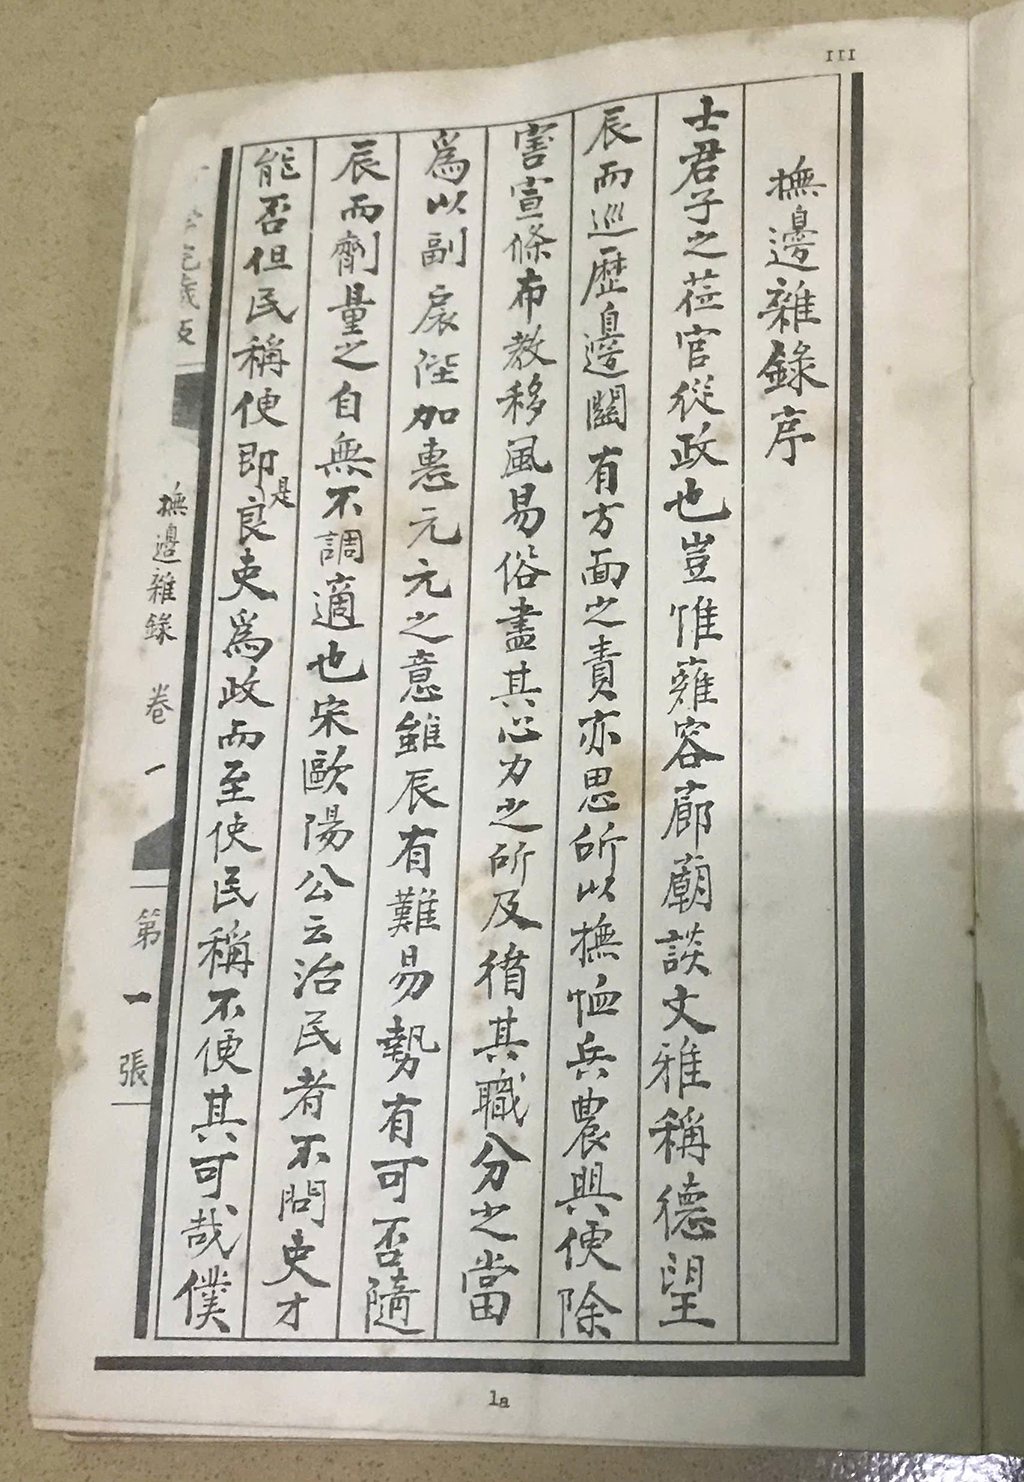 III
撫邊雜錄序
士君子之莅官從政也豈惟雍容廊廟談文雅稱德望
辰而巡歷邊關有方面之責亦思所以撫恤兵農興便除
害宣條布教移風易俗盡其心力之所及循其職分之當
爲以副扆陛加惠元元之意雖辰有難易勢有可否隨
辰而劑量之自無不調適也宋歐陽公云治民者不問吏才
能否但民稱便即是良吏爲政而至使民稱不便其可哉僕
撫邊雜錄 卷一 第一張
1a